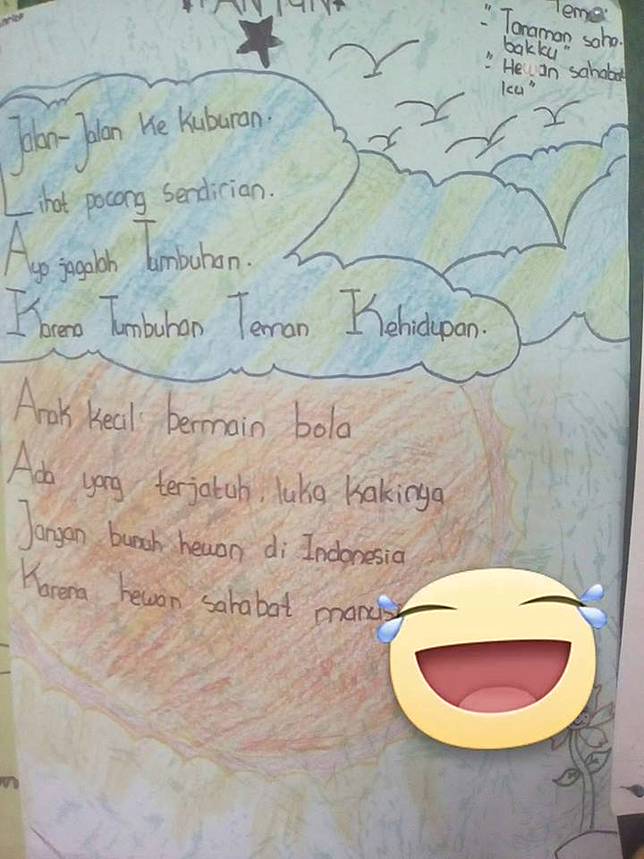 PANTUN
Tema:
- "Tanaman saha-
bakku"
- "Hewan sahabat
ku"
Jalan-Jalan ke kuburan.
Lihat pocong Sendirian.
Ayo jagalah Tumbuhan.
Karena Tumbuhan Teman Kehidupan.
Anak kecil bermain bola
Ada yang terjatuh, luka kakinya
Jangan bunuh hewan di Indonesia
Karena hewan sahabat